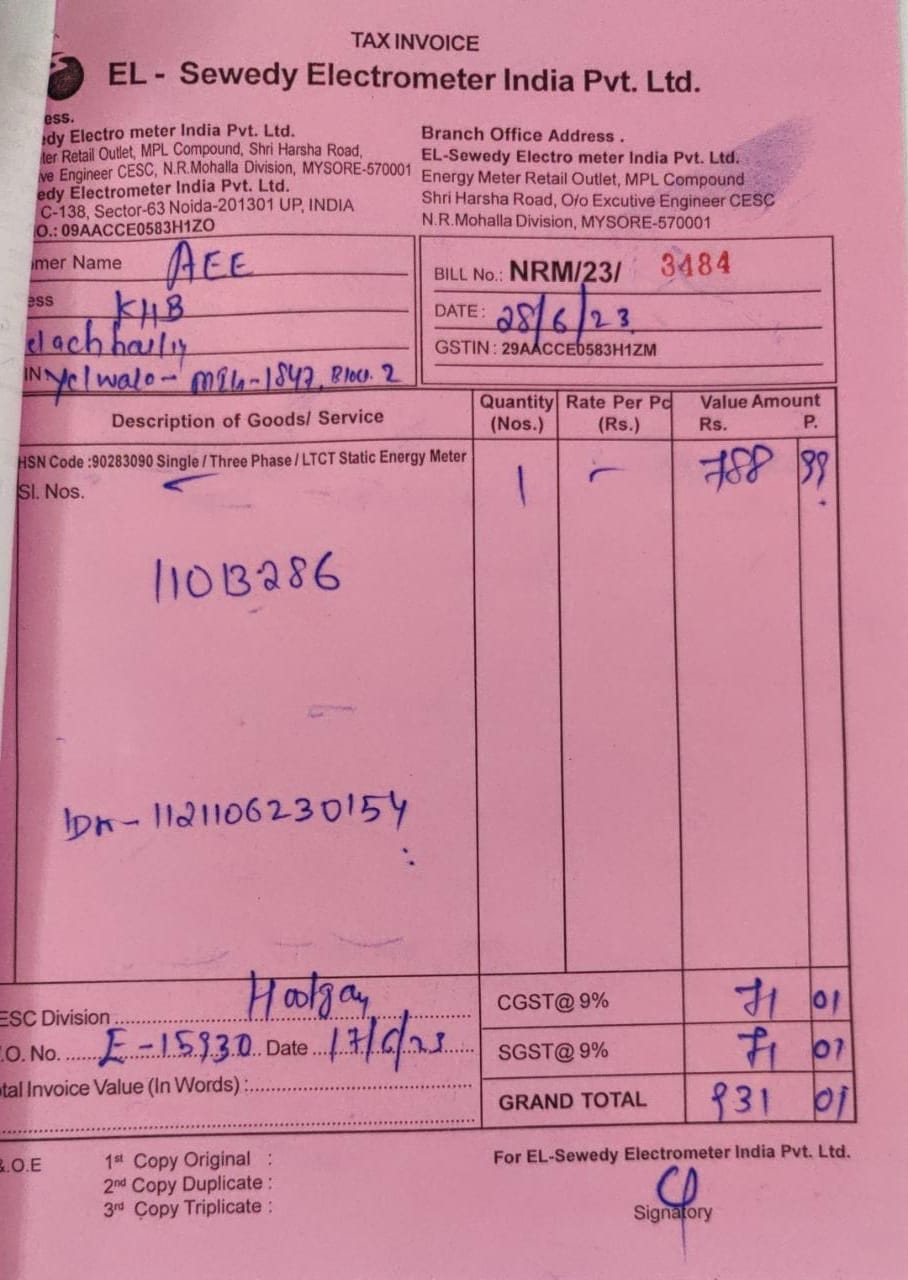 TAX INVOICE
EL - Sewedy Electrometer India Pvt. Ltd.
ess.
edy Electro meter India Pvt. Ltd.
ter Retail Outlet, MPL Compound, Shri Harsha Road,
ve Engineer CESC, N.R.Mohalla Division, MYSORE-570001
edy Electrometer India Pvt. Ltd.
C-138, Sector-63 Noida-201301 UP, INDIA
O.: 09AACCE0583H1ZO
Branch Office Address .
EL-Sewedy Electro meter India Pvt. Ltd.
Energy Meter Retail Outlet, MPL Compound
Shri Harsha Road, O/o Excutive Engineer CESC
N.R.Mohalla Division, MYSORE-570001
mer Name AEE
ess KHB
IN MIG-1847, Bloc. 2
BILL No.: NRM/23/ 3484
DATE: 28/6/23
GSTIN : 29AACCE0583H1ZM
Description of Goods/ Service Quantity (Nos.) Rate Per Pc (Rs.) Value Amount Rs. P.
HSN Code :90283090 Single / Three Phase / LTCT Static Energy Meter 1 - 788 99
Sl. Nos.
11013286
1121106230154
ESC Division Hootgay
.O. No. E-15930 Date 17/6/23
tal Invoice Value (In Words) :
CGST@ 9% 71 01
SGST@ 9% 71 01
GRAND TOTAL 931 01
&.O.E
1st Copy Original :
2nd Copy Duplicate :
3rd Copy Triplicate :
For EL-Sewedy Electrometer India Pvt. Ltd.
Signatory